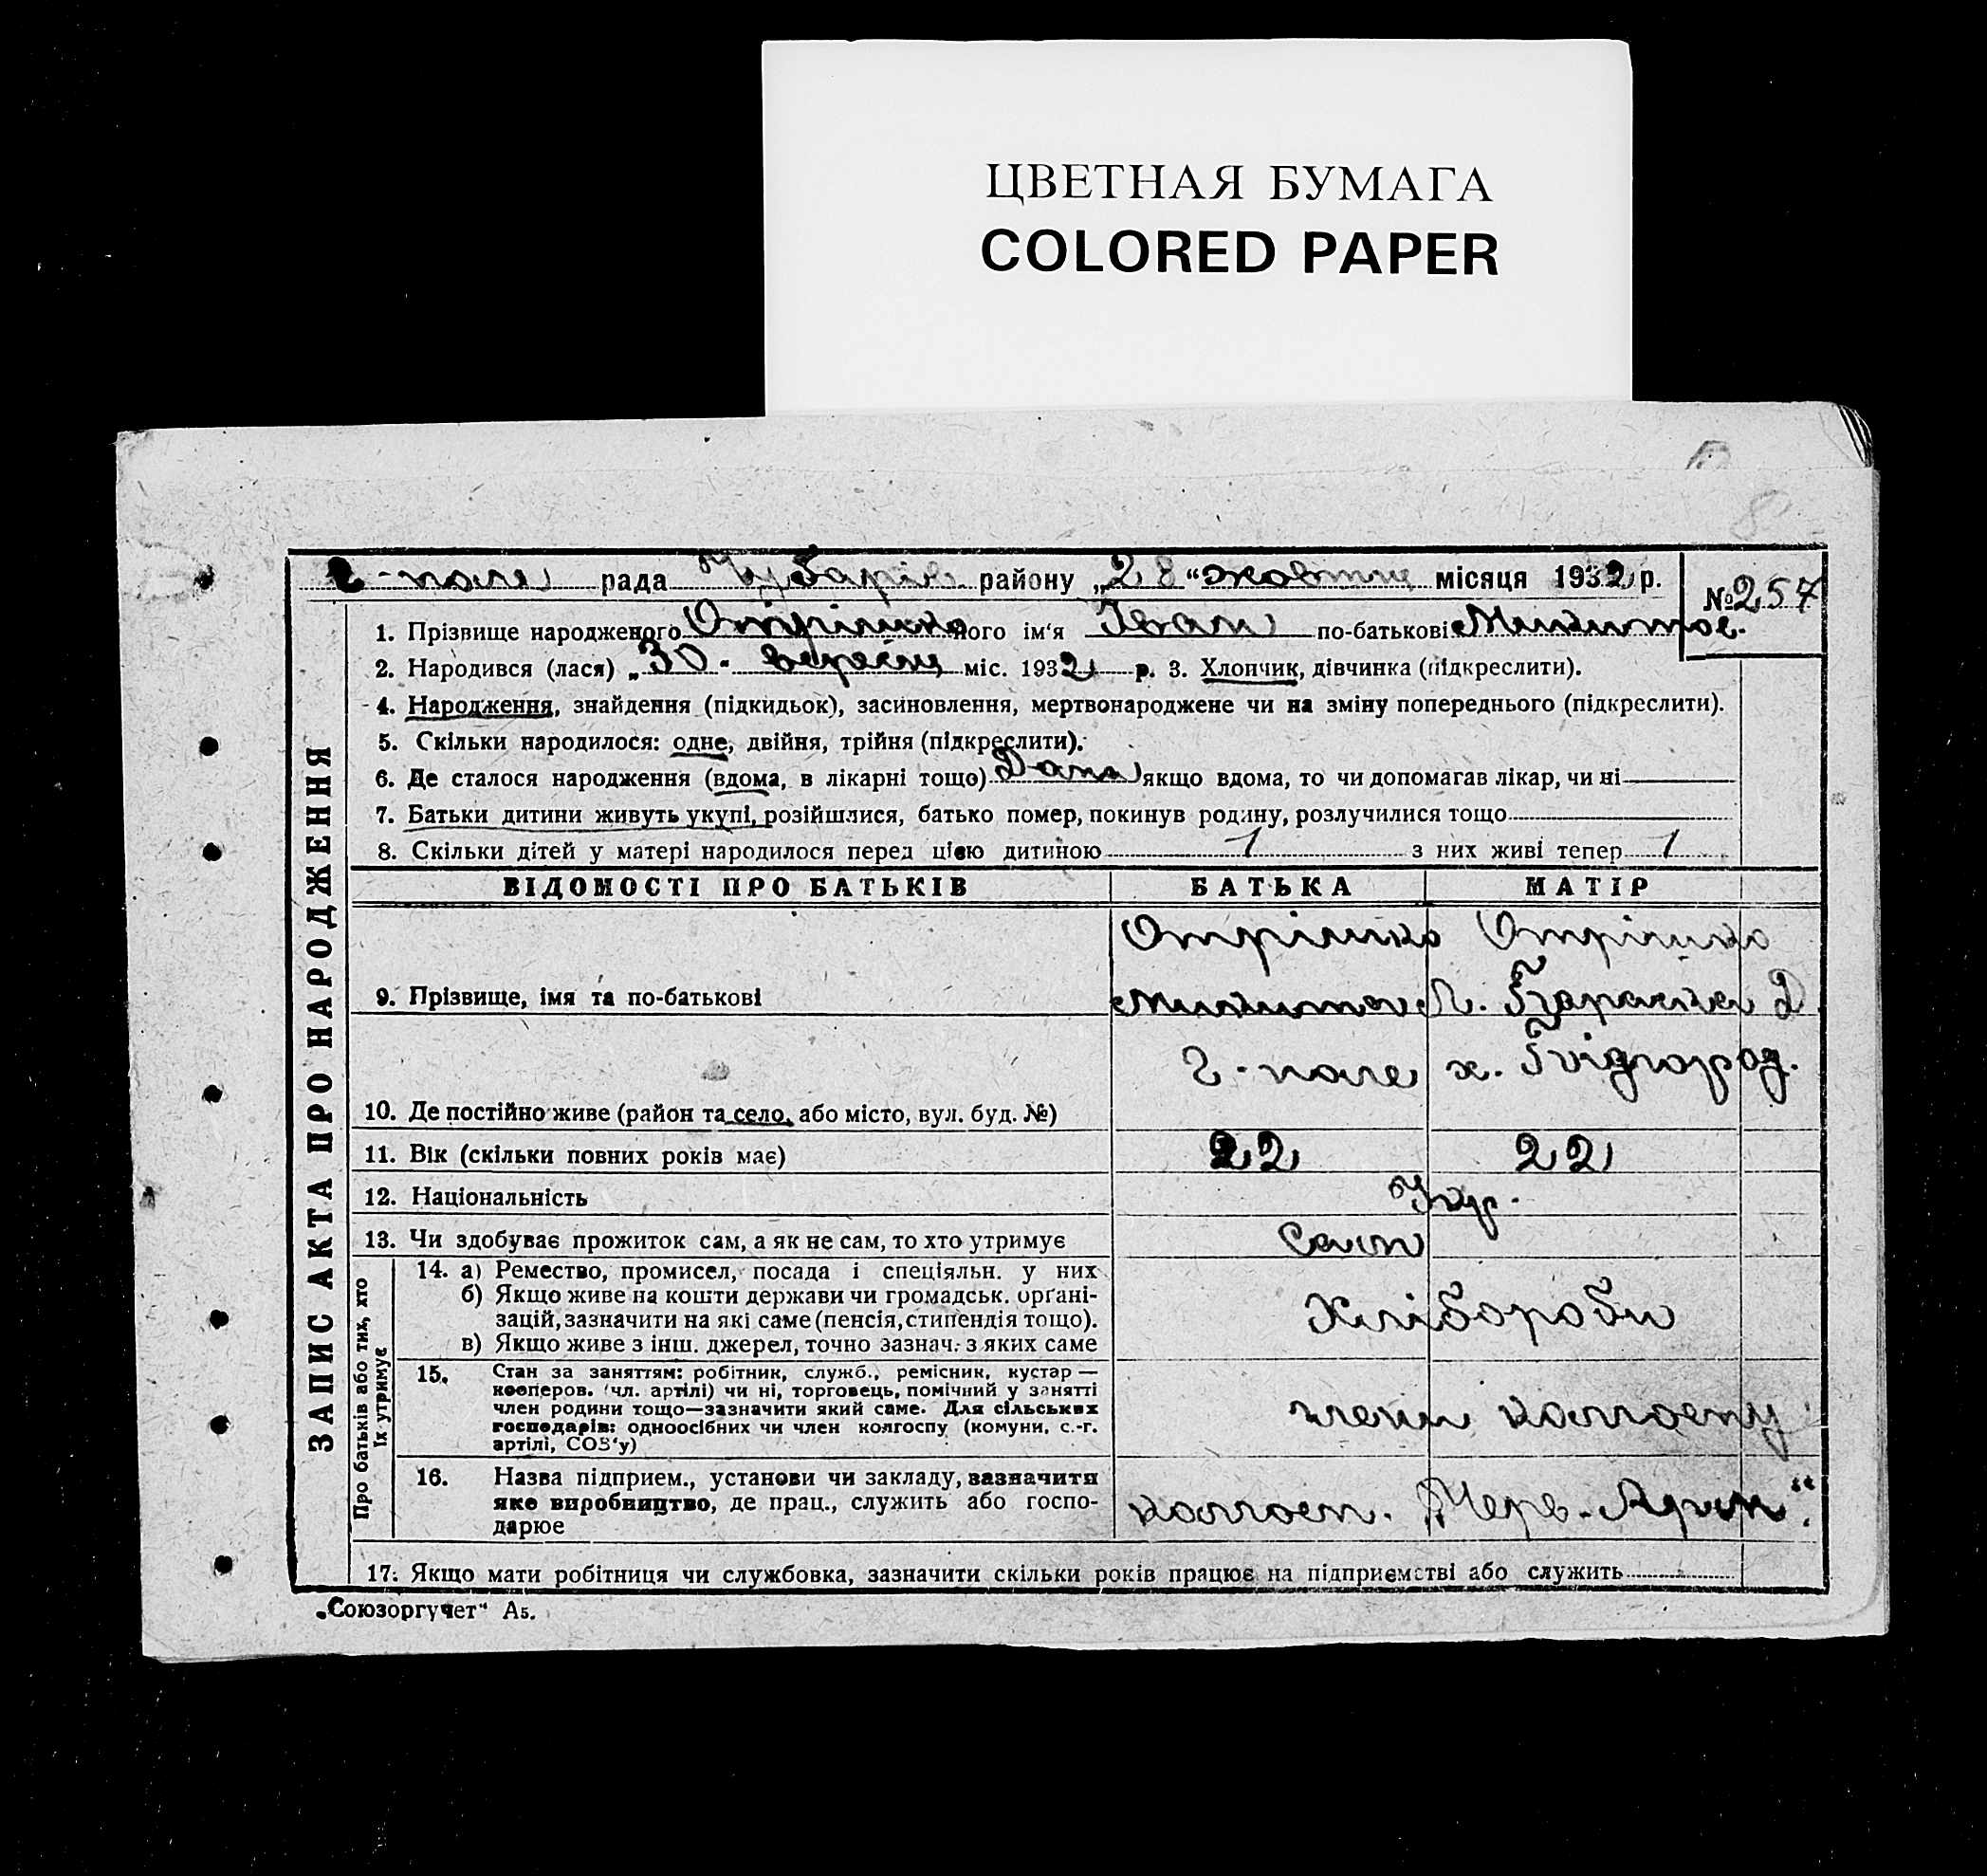 ЦВЕТНАЯ БУМАГА
COLORED PAPER
Г-поле рада Чубарів району „28“ жовтня місяця 1932 р.
№ 257
1. Прізвище народженого Отрішко його ім‘я Іван по-батькові Микитов.
2. Народився (лася) „30" вересня міс. 1932 р. 3. Хлопчик, дівчинка (підкреслити).
4. Народження, знайдення (підкидьок), засиновлення, мертвонароджене чи на зміну попереднього (підкреслити).
5. Скільки народилося: одне, двійня, трійня (підкреслити).
6. Де сталося народження (вдома, в лікарні тощо) Дома якщо вдома, то чи допомагав лікар, чи ні
7. Батьки дитини живуть укупі, розійшлися, батько помер, покинув родину, розлучилися тощо
8. Скільки дітей у матері народилося перед цією дитиною 1 з них живі тепер 1
ВІДОМОСТІ ПРО БАТЬКІВ БАТЬКА МАТІР
Отрішко Отрішко
9. Прізвище, імя та по-батькові
Г-поле х.
10. Де постійно живе (район та село, або місто, вул. буд. №)
11. Вік (скільки повних років має) 22 22
12. Національність Укр.
13. Чи здобуває прожиток сам, а як не сам, то хто утримує Сами
14. а) Ремество, промисел, посада і спеціяльн. у них
б) Якщо живе на кошти держави чи громадськ. органі-
зацій, зазначити на які саме (пенсія, стипендія тощо).
в) Якщо живе з інш. джерел, точно зазнач. з яких саме
Хлібороби
15. Стан за заняттям: робітник, служб., ремісник, кустар —
кооперов. (чл. артілі) чи ні, торговець, помічний у занятті
член родини тощо—зазначити який саме. Для сільських
господарів: одноосібних чи член колгоспу (комуни, с.-г.
артілі, СОЗ‘у)
члени колгоспу
16. Назва підприєм., установи чи закладу, зазначити
яке виробництво, де прац., служить або госпо-
дарює
колгосп. „Черв.
17. Якщо мати робітниця чи службовка, зазначити скільки років працює на підприємстві або служить
ЗАПИС АКТА ПРО НАРОДЖЕННЯ
Про батьків або тих, хто
їх утримує
„Союзоргучет“ А5.